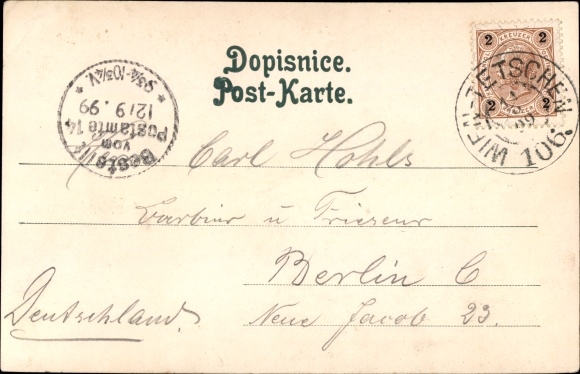 Dopisnice.
Post-Karte.
2 KREUZER 2
2 2
WIEN-TETSCHEN
99
106.
Bestellt
vom
Postamte 14
12/9.99
9¾-10¾V
Carl Hohls
Barbier u Friseur
Berlin C
Deutschland.
Neue Jacob 23.